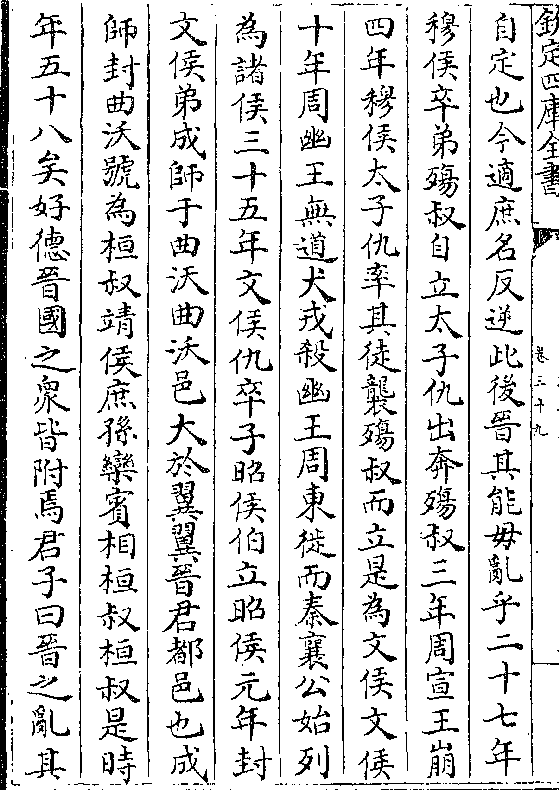 欽定四庫全書
卷三十九
自定也今適庶名反逆此後晉其能毋亂乎二十七年
穆侯卒弟殤叔自立太子仇出奔殤叔三年周宣王崩
四年穆侯太子仇率其徒襲殤叔而立是為文侯文侯
十年周幽王無道犬戎殺幽王周東徙而秦襄公始列
為諸侯三十五年文侯仇卒子昭侯伯立昭侯元年封
文侯弟成師于曲沃曲沃邑大於翼翼晉君都邑也成
師封曲沃號為桓叔靖侯庶孫欒賓相桓叔桓叔是時
年五十八矣好德晉國之衆皆附焉君子曰晉之亂其